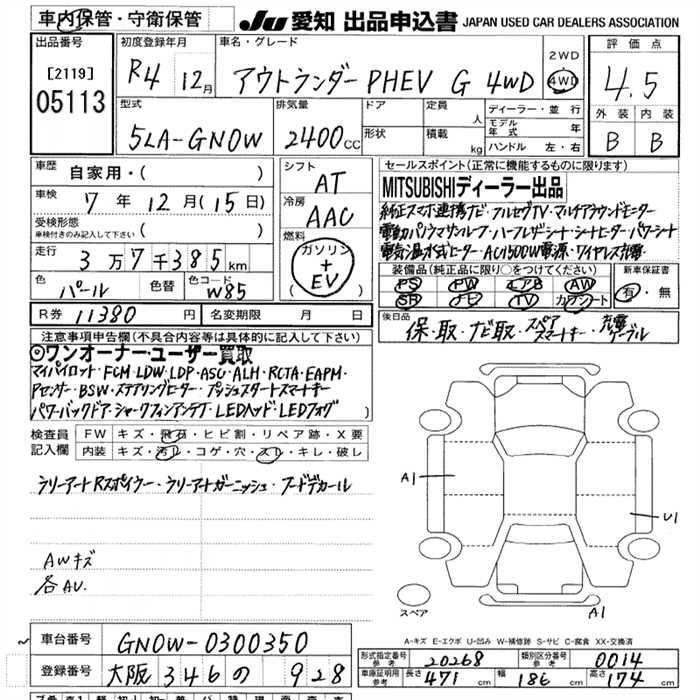 車内保管・守衛保管
JU 愛知 出品申込書 JAPAN USED CAR DEALERS ASSOCIATION
出品番号
[2119]
05113
初度登録年月
R4 12月
車名・グレード
アウトランダーPHEV G 4WD
2WD
4WD
評価点
4.5
外装 内装
B B
型式
5LA-GN0W
排気量
2400cc
ドア
形状
定員 人
積載 kg
ディーラー・並行
モデル年式 年
ハンドル 左・右
車歴
自家用・( )
車検 7年12月(15日)
受検形態
車検付きのみ記入して下さい ( )
走行 3万7千385km
色 パール 色替 色コード W85
R券 11380円 名変期限 月 日
シフト
AT
冷房
AAC
燃料
ガソリン
+
EV
セールスポイント(正常に機能するものに限ります)
MITSUBISHIディーラー出品
純正スマホ連携ナビ・フルセグTV・マルチアラウンドモニター
電動パノラマサンルーフ・ハーフレザーシート・シートヒーター・パワーシート
電気温水式ヒーター・AC1500W電源・ワイヤレス充電
装備品(純正品に限り○をつけてください)
PS PW エアB AW
SR ナビ TV カワシート
新車保証書
有・無
後日品
保・取・ナビ取・スペアスマートキー・充電ケーブル
注意事項申告欄(不具合内容等は具体的に記入して下さい)
◎ワンオーナー・ユーザー買取
マイパイロット・FCM・LDW・LDP・ASC・ALH・RCTA・EAPM・
Pセンサー・BSW・ステアリングヒーター・プッシュスタートスマートキー
パワーバックドア・シャークフィンアンテナ・LEDヘッド・LEDフォグ )
検査員記入欄
FW キズ・飛石・ヒビ割・リペア跡・X要
内装 キズ・汚レ・コゲ・穴・スレ・キレ・破レ
ラリーアートRスポイラー・ラリーアートガーニッシュ・フードデカール
AWキズ
各AU.
A1
U1
A1
スペア
A-キズ E-エクボ U-凹み W-補修跡 S-サビ C-腐食 XX-交換済
車台番号 GN0W-0300350
登録番号 大阪 346 の 928
形式指定番号 参考 20268 類別区分番号 参考 0014
車庫証明用 参考 長さ 471 幅 186 高さ 174